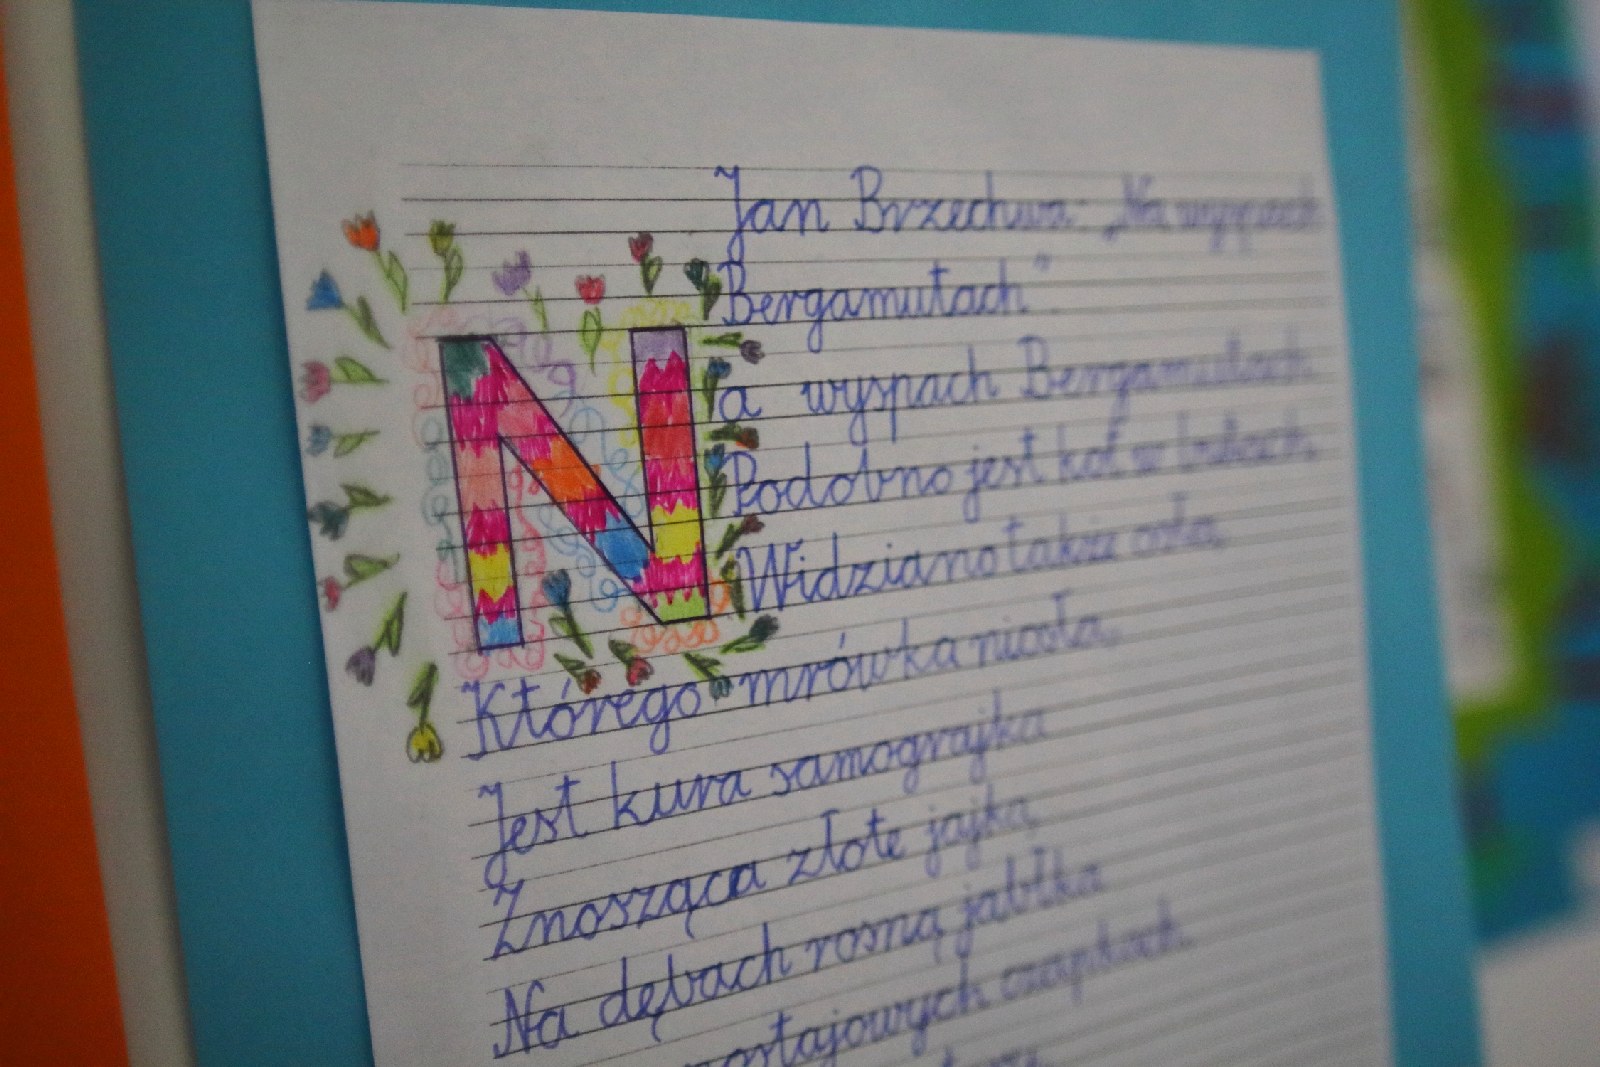 Jan Brzechwa „Na wyspach
Bergamutach".
Na wyspach Bergamutach
Podobno jest kot w butach,
Widziano także osła,
Którego mrówka niosła,
Jest kura samograjka
Znosząca złote jajka,
Na dębach rosną jabłka
gronostajowych czapkach,